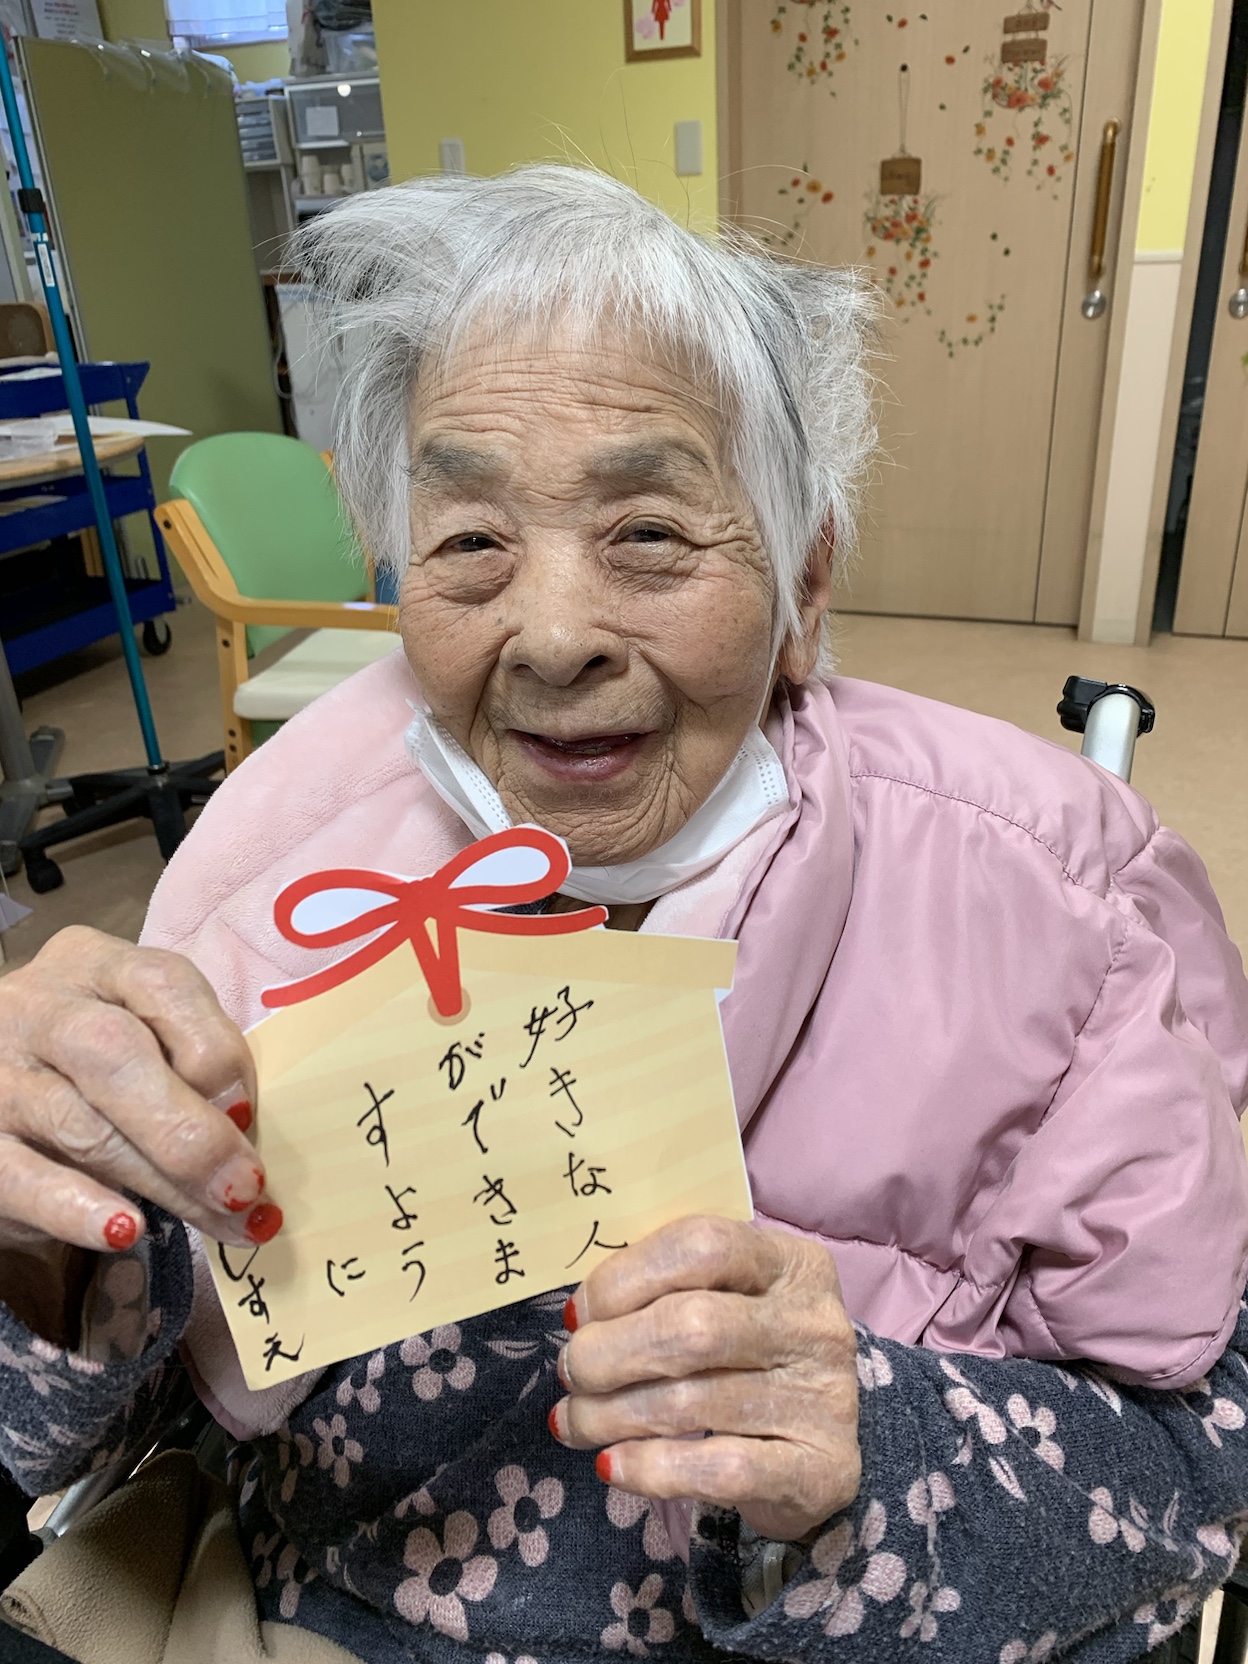 好きな人
ができま
すよう
に
しすえ